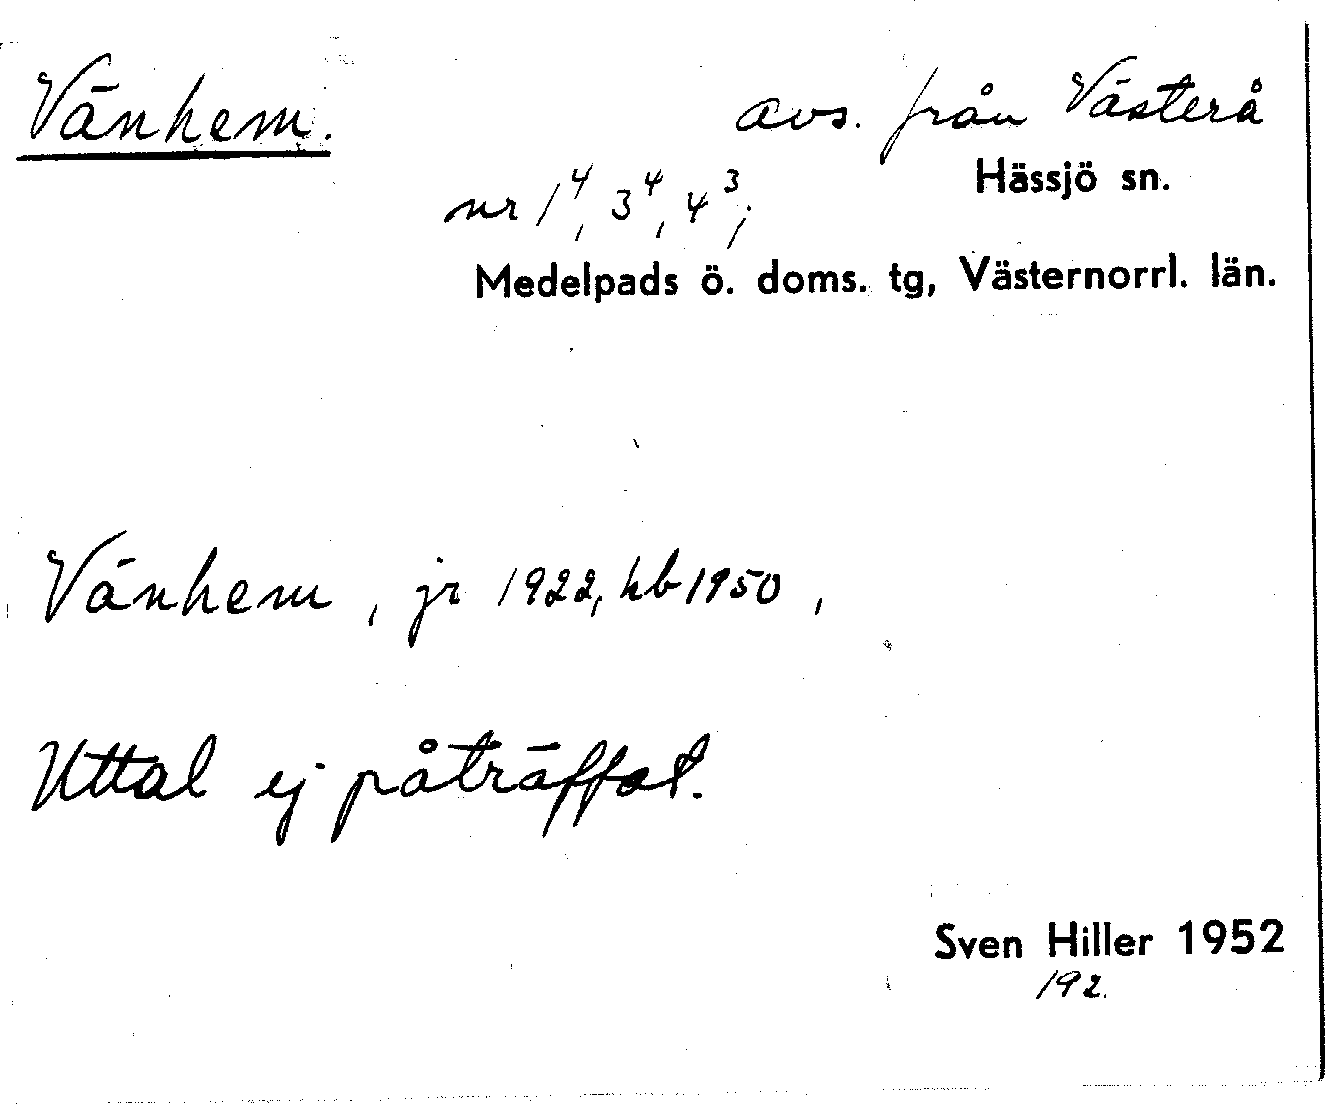 Vänhem. avs. från Västerå
Hässjö sn.
nr 1⁴, 3⁴, 4³;
Medelpads ö. doms. tg, Västernorrl. län.
Vänhem, jr 1922, hb 1950,
Uttal ej påträffat.
Sven Hiller 1952
192.